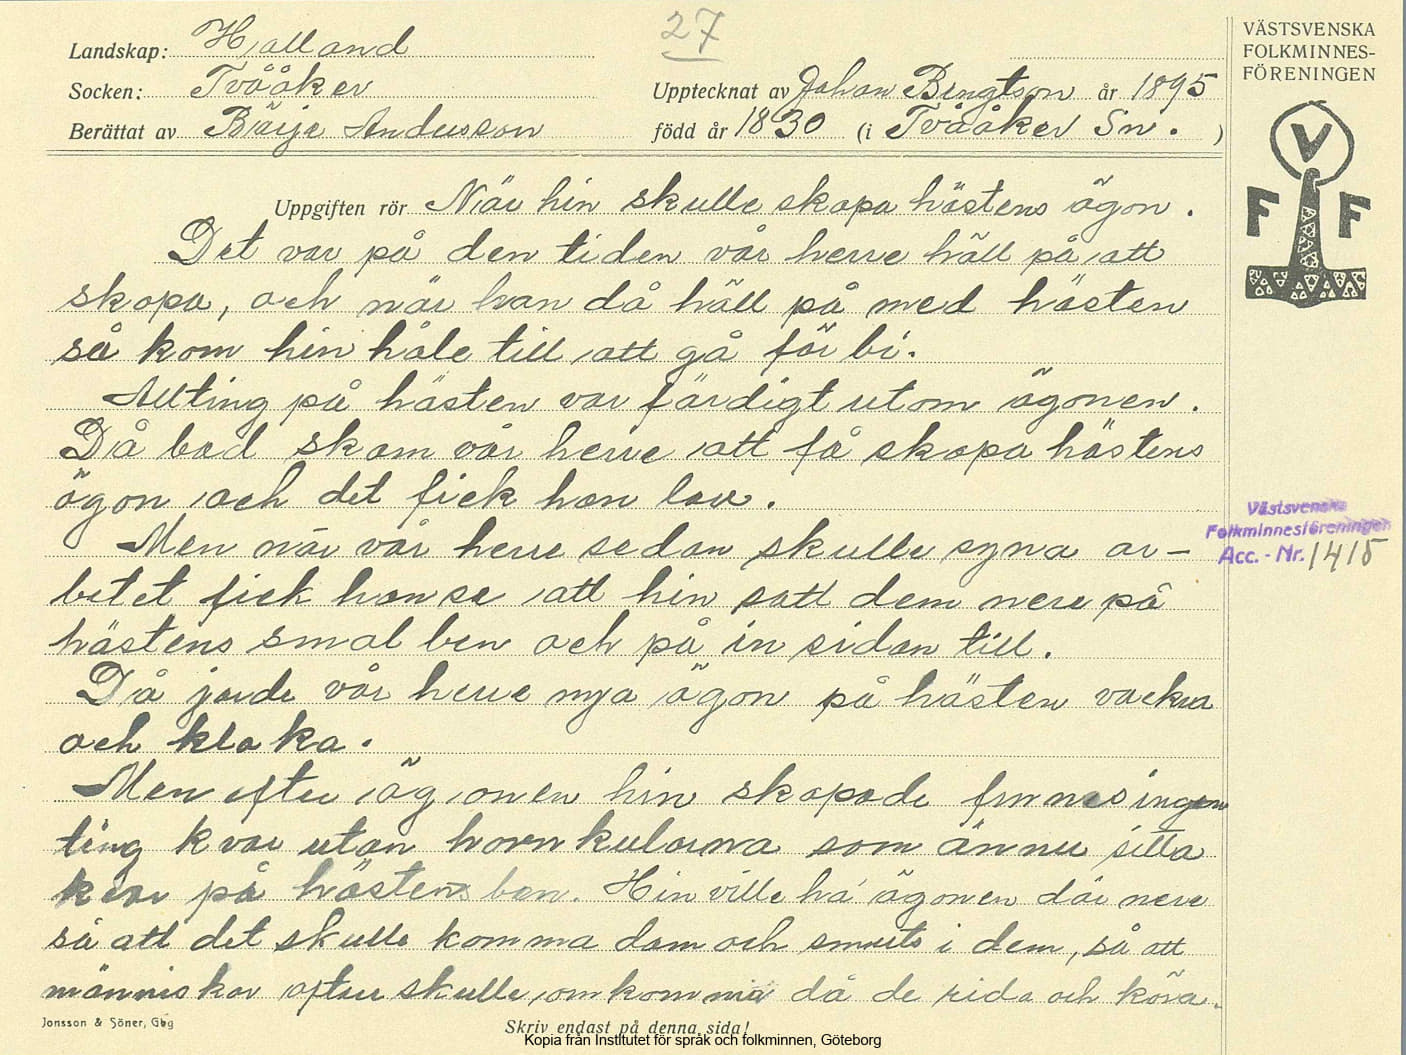 27
Landskap: Halland
Socken: Tvååker
Upptecknat av Johan Bengtson år 1895
Berättat av Börje Andersson
född år 1830 (i Tvååker Sn. )
VÄSTSVENSKA
FOLKMINNES-
FÖRENINGEN
V
F F
Uppgiften rör När hin skulle skapa hästens ögon.
Det var på den tiden vår herre höll på att
skapa, och när han då höll på med hästen
så kom hin håle till att gå för bi.
Allting på hästen var färdigt utom ögonen.
Då bad skam vår herre att få skapa hästens
ögon och det fick han lov.
Men när vår herre sedan skulle syna ar-
betet fick han se att hin satt dem nere på
hästens smal ben och på in sidan till.
Då jorde vår herre nya ögon på hästen vackra
och kloka.
Men efter ögonen hin skapade finnes ingen
ting kvar utan hornkulorna som ännu sitta
kvar på hästens ben. Hin ville ha ögonen där nere
så att det skulle komma dam och smuts i dem, så att
människor oftare skulle omkomma då de rida och köra.
Västsvenska
Folkminnesföreningen
Acc. - Nr. 1415
Jonsson & Söner, Gbg
Skriv endast på denna sida!
Kopia från Institutet för språk och folkminnen, Göteborg